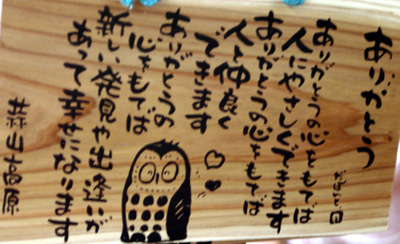 ありがとう
ありがとうの心をもてば
人にやさしくできます
ありがとうの心をもてば
人と仲良く
できます
ありがとうの
心をもてば
新しい発見や出逢いが
あって幸せになります
蒜山高原